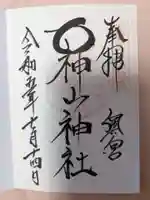 奉拝
神山神社
令和五年七月十四日